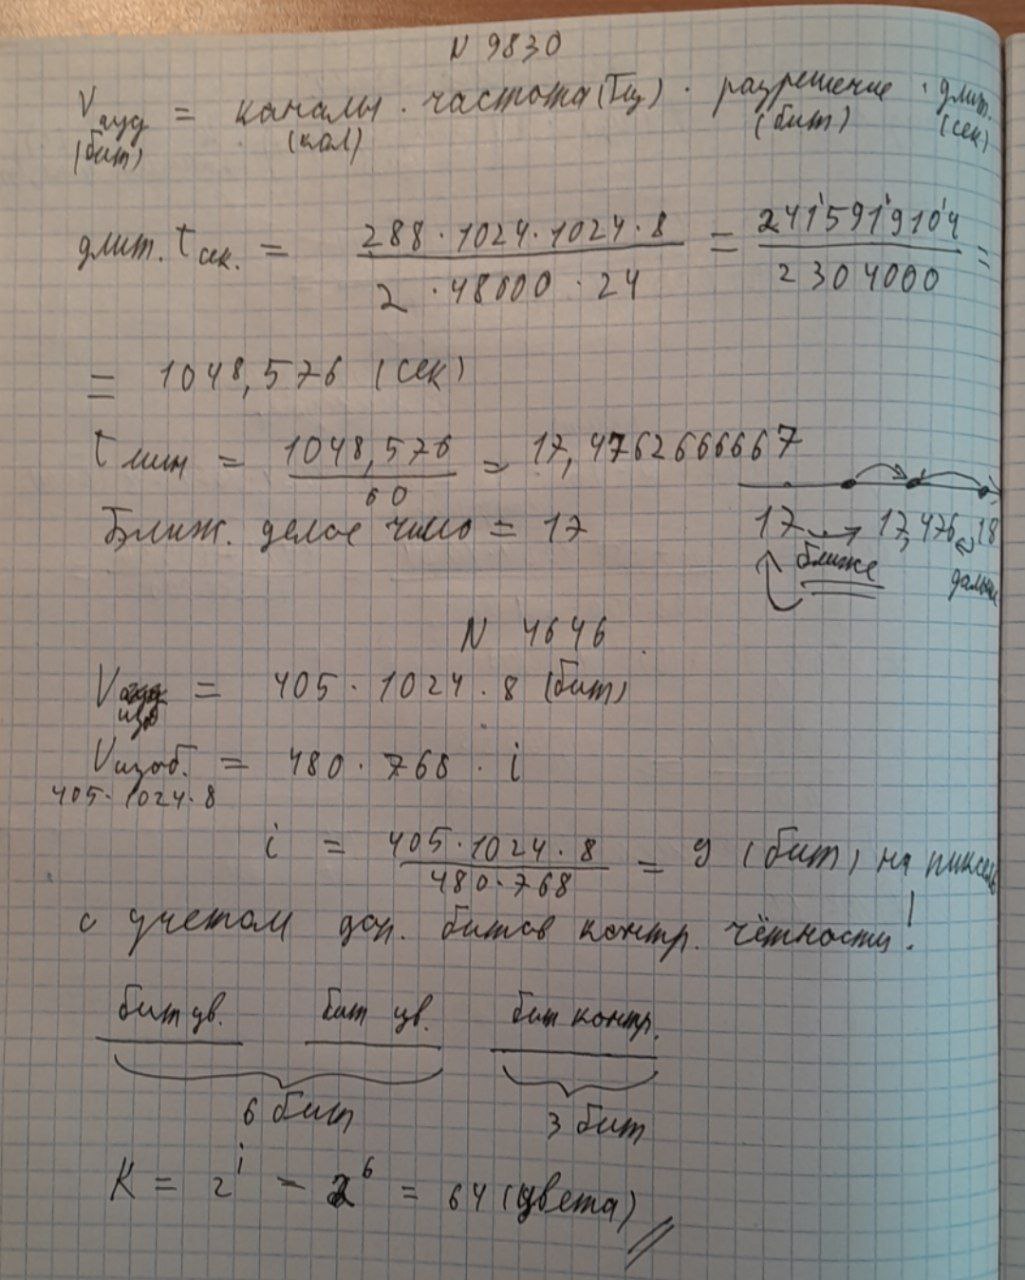 N 9830
V ауд (бит) = каналы (кол) · частота (Гц) · разрешение (бит) · длит. (сек)
длит. t сек. = 288 · 1024 · 1024 · 8 / 2 · 48000 · 24 = 2415919104 / 2304000 =
= 1048,576 (сек)
t мин = 1048,576 / 60 = 17,4762666667
Ближ. целое число = 17
17 → 17,476 18
ближе
дальше
N 4646
V изо = 405 · 1024 · 8 (бит)
V изоб. = 480 · 768 · i
405 · 1024 · 8
i = 405 · 1024 · 8 / 480 · 768 = 9 (бит) на пиксель
с учетом доп. битов контр. чётности!
бит цв. бит цв. бит контр.
6 бит 3 бит
K = 2^i = 2^6 = 64 (цвета)